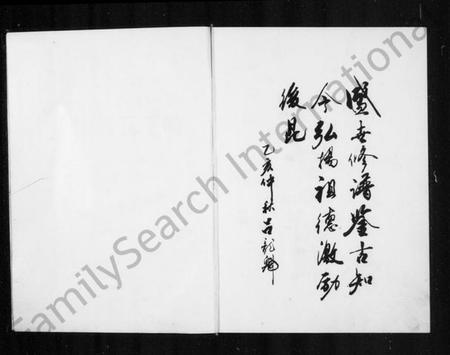 盛世修譜鑒古知
今弘揚祖德激勵
後昆
乙亥仲秋吕龍
FamilySearch International